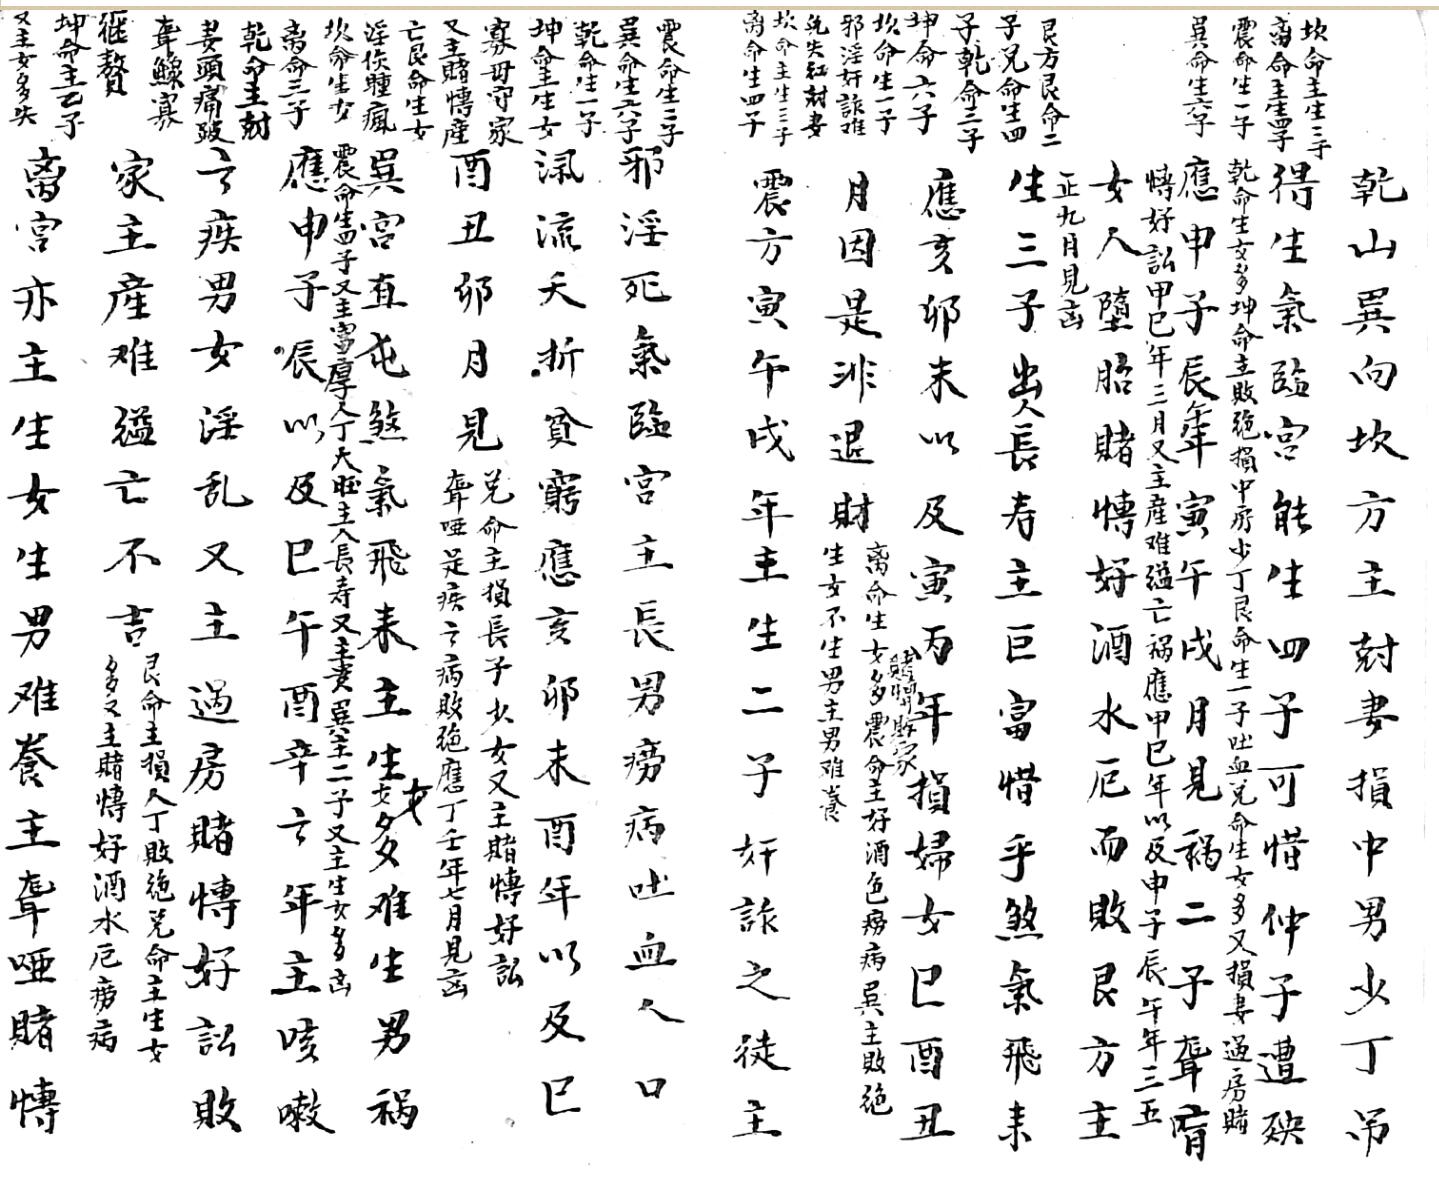 坎命主生三子
离命主生四子
震命生一子
巽命生六子
艮方艮命二
子兑命生四
子乾命三子
坤命六子
坎命生一子
邪淫奸詐难
兑失紅尅妻
坎命主生三子
离命生四子
乾山巽向坎方主尅妻損中男少丁吊
得生氣臨宫能生四子可惜仲子遭殃
乾命生女多坤命主敗绝損中房少丁艮命生一子吐血兑命生女多又損妻過房賭
應申子辰年寅午戌月見禍二子聋盲
愽好訟甲巳年三月又主産难縊亡禍應甲巳年以及申子辰午年三五
女人墮胎賭愽好酒水厄而敗艮方主
正九月見凶
生三子出人長寿主巨富惜乎煞氣飛耒
應亥卯未以及寅丙年損婦女巳酉丑
賭愽敗家
离命生女多震命主好酒色痨病巽主敗绝
月因是非退財
生女不生男主男难养
震方寅午戌年主生二子奸詐之徒主
震命生三子
巽命生六子
乾命生一子
坤命主生女
寡母守家
又主賭愽産
亡艮命生女
淫佚瞳瘋
坎命生女
离命三子
乾命主尅
妻頭痛跛
聋鰥寡
继贅
坤命主乙子
又主女多失
邪淫死氣臨宫主長男痨病吐血人口
流夭折貧窮應亥卯未酉年以及巳
酉丑卯月見
兑命主損長子少女又主賭愽好訟
聋哑足疾言病敗绝應丁壬年七月見凶
巽宫直屯煞氣飛耒主生女多难生男禍
震命生四子又主富厚人丁大旺主人長寿又主贵巽主二子又主生女多凶
應申子辰以及巳午酉辛言年主咳嗽
言疾男女淫乱又主過房賭愽好訟敗
家主産难縊亡不吉
艮命主損人丁敗绝兑命主生女
多又主賭愽好酒水厄痨病
离宫亦主生女生男难养主聋哑賭愽